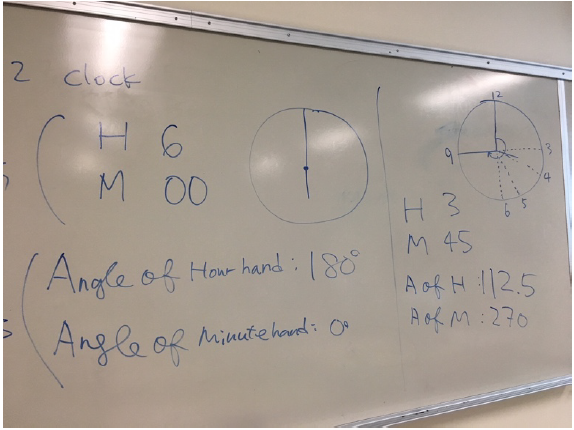 2 clock
H 6
M 00
Angle of Hour hand: 180°
Angle of Minute hand: 0°
12
9
3
4
5
6
H 3
M 45
A of H: 112.5
A of M: 270